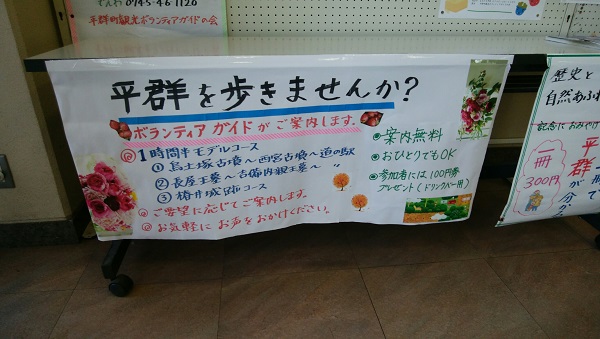 でんわ 0745-46-1120
平群町観光ボランティアガイドの会
平群を歩きませんか?
ボランティアガイドがご案内します。
@1時間半モデルコース
①烏土塚古墳～西宮古墳～道の駅
②長屋王墓～吉備内親王墓～ 〃
③椿井城跡コース
@ご要望に応じてご案内します。
@お気軽にお声をおかけください。
●案内無料
●おひとりでもOK
●参加者には100円券
プレゼント(ドリンクバー用)
歴史と
自然あふれ
記念におみやげ
冊
300円
平群
が